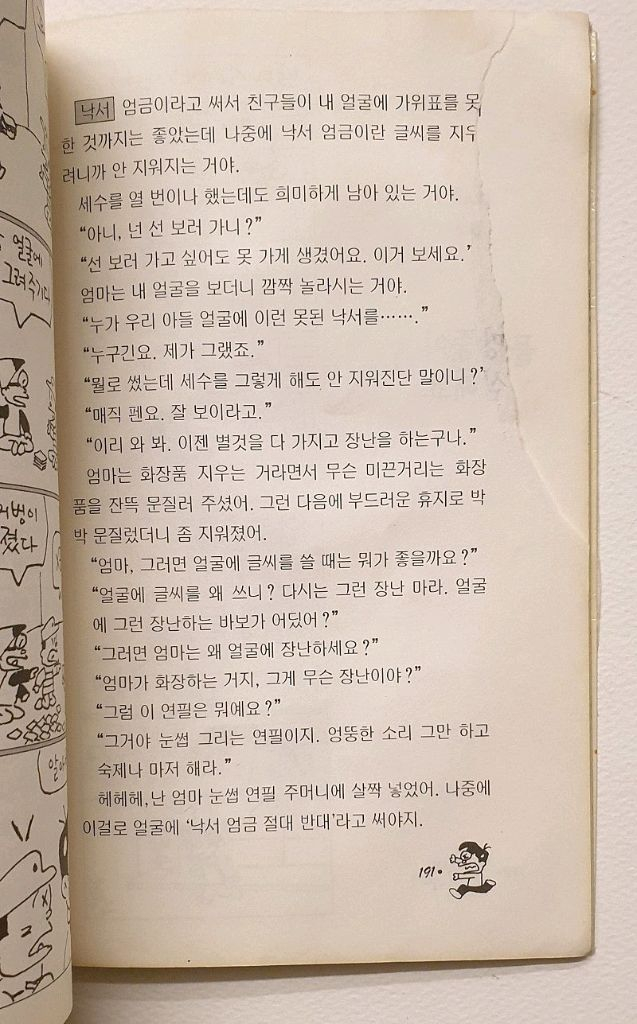 얼굴에
그려 주기다
거벙이
졌다
낙서 엄금이라고 써서 친구들이 내 얼굴에 가위표를 못
한 것까지는 좋았는데 나중에 낙서 엄금이란 글씨를 지우
려니까 안 지워지는 거야.
세수를 열 번이나 했는데도 희미하게 남아 있는 거야.
“아니, 넌 선 보러 가니?”
“선 보러 가고 싶어도 못 가게 생겼어요. 이거 보세요.’
엄마는 내 얼굴을 보더니 깜짝 놀라시는 거야.
“누가 우리 아들 얼굴에 이런 못된 낙서를…….”
“누구긴요. 제가 그랬죠.”
“뭘로 썼는데 세수를 그렇게 해도 안 지워진단 말이니?’
“매직 펜요. 잘 보이라고.”
“이리 와 봐. 이젠 별것을 다 가지고 장난을 하는구나.”
엄마는 화장품 지우는 거라면서 무슨 미끈거리는 화장
품을 잔뜩 문질러 주셨어. 그런 다음에 부드러운 휴지로 박
박 문질렀더니 좀 지워졌어.
“엄마, 그러면 얼굴에 글씨를 쓸 때는 뭐가 좋을까요?”
“얼굴에 글씨를 왜 쓰니? 다시는 그런 장난 마라. 얼굴
에 그런 장난하는 바보가 어딨어?”
“그러면 엄마는 왜 얼굴에 장난하세요?”
“엄마가 화장하는 거지, 그게 무슨 장난이야?”
“그럼 이 연필은 뭐예요?”
“그거야 눈썹 그리는 연필이지. 엉뚱한 소리 그만 하고
숙제나 마저 해라.”
헤헤헤, 난 엄마 눈썹 연필 주머니에 살짝 넣었어. 나중에
이걸로 얼굴에 ‘낙서 엄금 절대 반대’라고 써야지.
191•